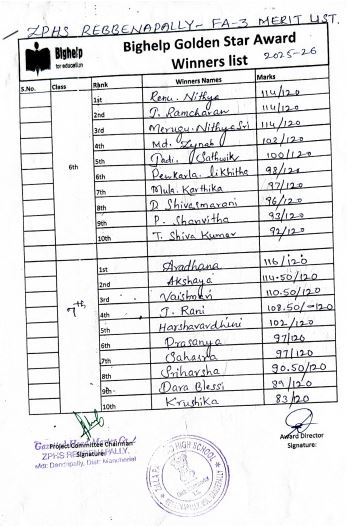 ZPHS REBBENAPALLY - FA-3 MERIT LIST.
Bighelp for education
Bighelp Golden Star Award
Winners list 2025-26
S.No. Class Rank Winners Names Marks
1st Renu. Nithya 114/120
2nd J. Ramcharan 114/120
3rd Merugu. Nithya Sri 114/120
4th Md. Zynab 102/120
5th Jadi. Sathwik 100/120
6th 6th Pewkarla. likhitha 98/120
7th Mula. Karthika 97/120
8th D Shivasmarani 96/120
9th P. Shanvitha 93/120
10th T. Shiva Kumar 92/120
1st Aradhana 116/120
2nd Akshaya 114.50/120
3rd Vaishnavi 110.50/120
7th 4th J. Rani 108.50/120
5th Harshavardhini 102/120
6th Prasanya 97/120
7th Sahasra 97/120
8th Sriharsha 90.50/120
9th Dara Blessi 89/120
10th Krushika 83/120
Project Committee Chairman
Signature:
ZPHS REBBENAPALLY,
Mdl: Dandepally, Dist: Mancherial
Award Director
Signature:
HIGH SCHOOL